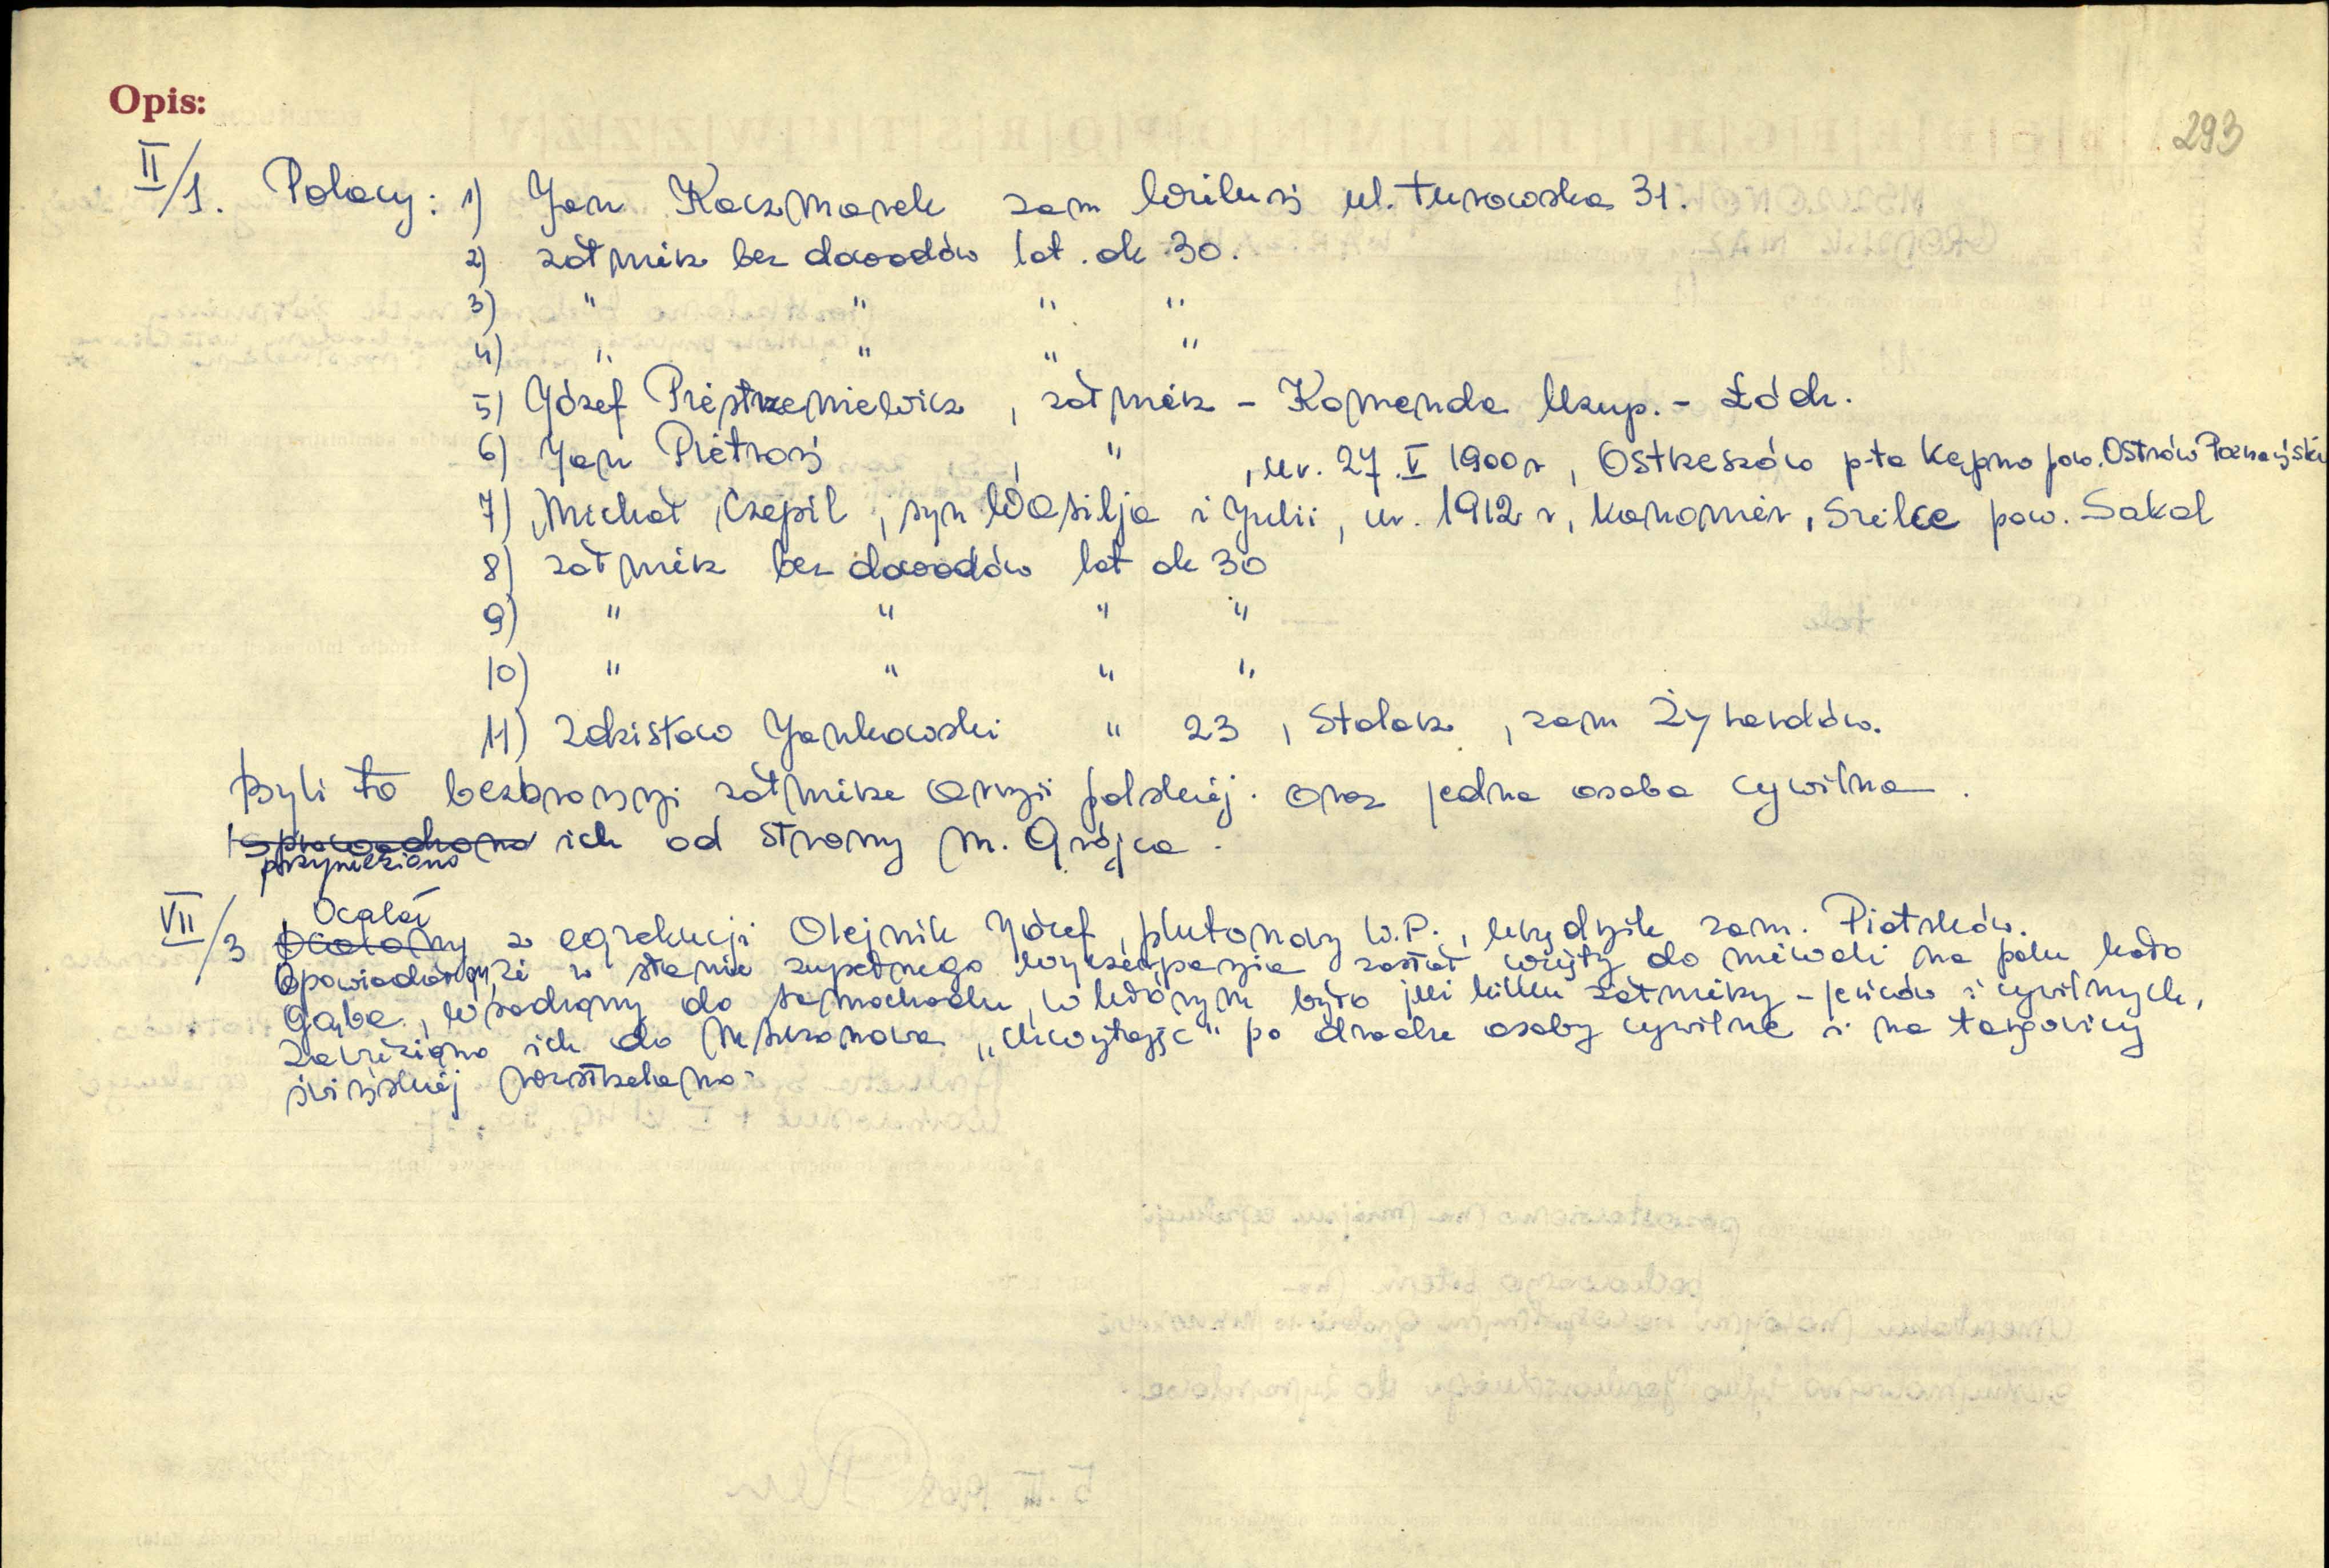 Opis:
293
II/1. Polacy: 1) Jan Kaczmarek zam Wieluń ul. Turowska 31.
2) żołnierz bez dowodów lat ok 30.
3) " " " "
4) " " " "
5) Józef Pietrzeniewicz, żołnierz - Komenda Uzup. - Łódź.
6) Jan Pietroń, ", ur. 27.V 1900 r, Ostrzeszów p-ta Kępno pow. Ostrów Poznański
7) Michał Czepil, syn Wasilja i Julii, ur. 1912 r, kanonier, Sielce pow. Sokal
8) żołnierz bez dowodów lat ok 30
9) " " " "
10) " " " "
11) Zdzisław Jankowski " 23, Stolarz, zam Żyrardów.
Byli to bezbronni żołnierze armii polskiej oraz jedna osoba cywilna.
przywieziono ich od strony m. Grójca.
VII/3 Ocalał z egzekucji Olejnik Józef, plutonowy W.P., urzędnik zam. Piotrków.
Opowiadał, że w stanie zupełnego wyczerpania został wzięty do niewoli na polu koło
Gąba, wsadzony do samochodu, w którym było już kilku żołnierzy - jeńców i cywilnych,
zawieziono ich do Mszczonowa "chwytając" po drodze osoby cywilne i na targowicy
świńskiej rozstrzelano.